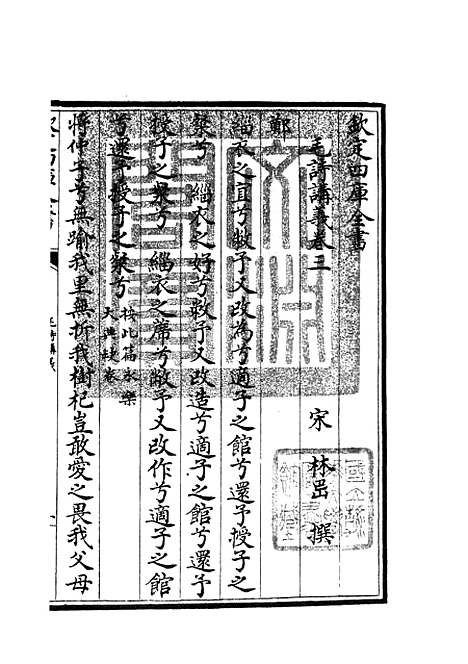 欽定四庫全書
毛詩講義卷三
宋 林岊 撰
鄭
緇衣之宜兮敝予又改為兮適子之館兮還予授子之
粲兮 緇衣之好兮敝予又改造兮適子之館兮還予
授子之粲兮 緇衣之蓆兮敝予又改作兮適子之館
兮還予授子之粲兮 按此篇永樂
大典缺卷
將仲子兮無踰我里無折我樹杞豈敢愛之畏我父母